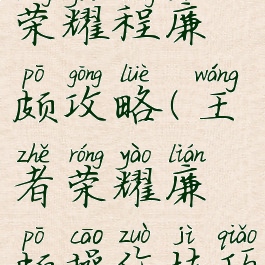 荣耀程廉
pō gōng lüè wáng
颇攻略(王
zhě róng yào lián
者荣耀廉
pō cāo zuò jì qiǎo
颇操作技巧